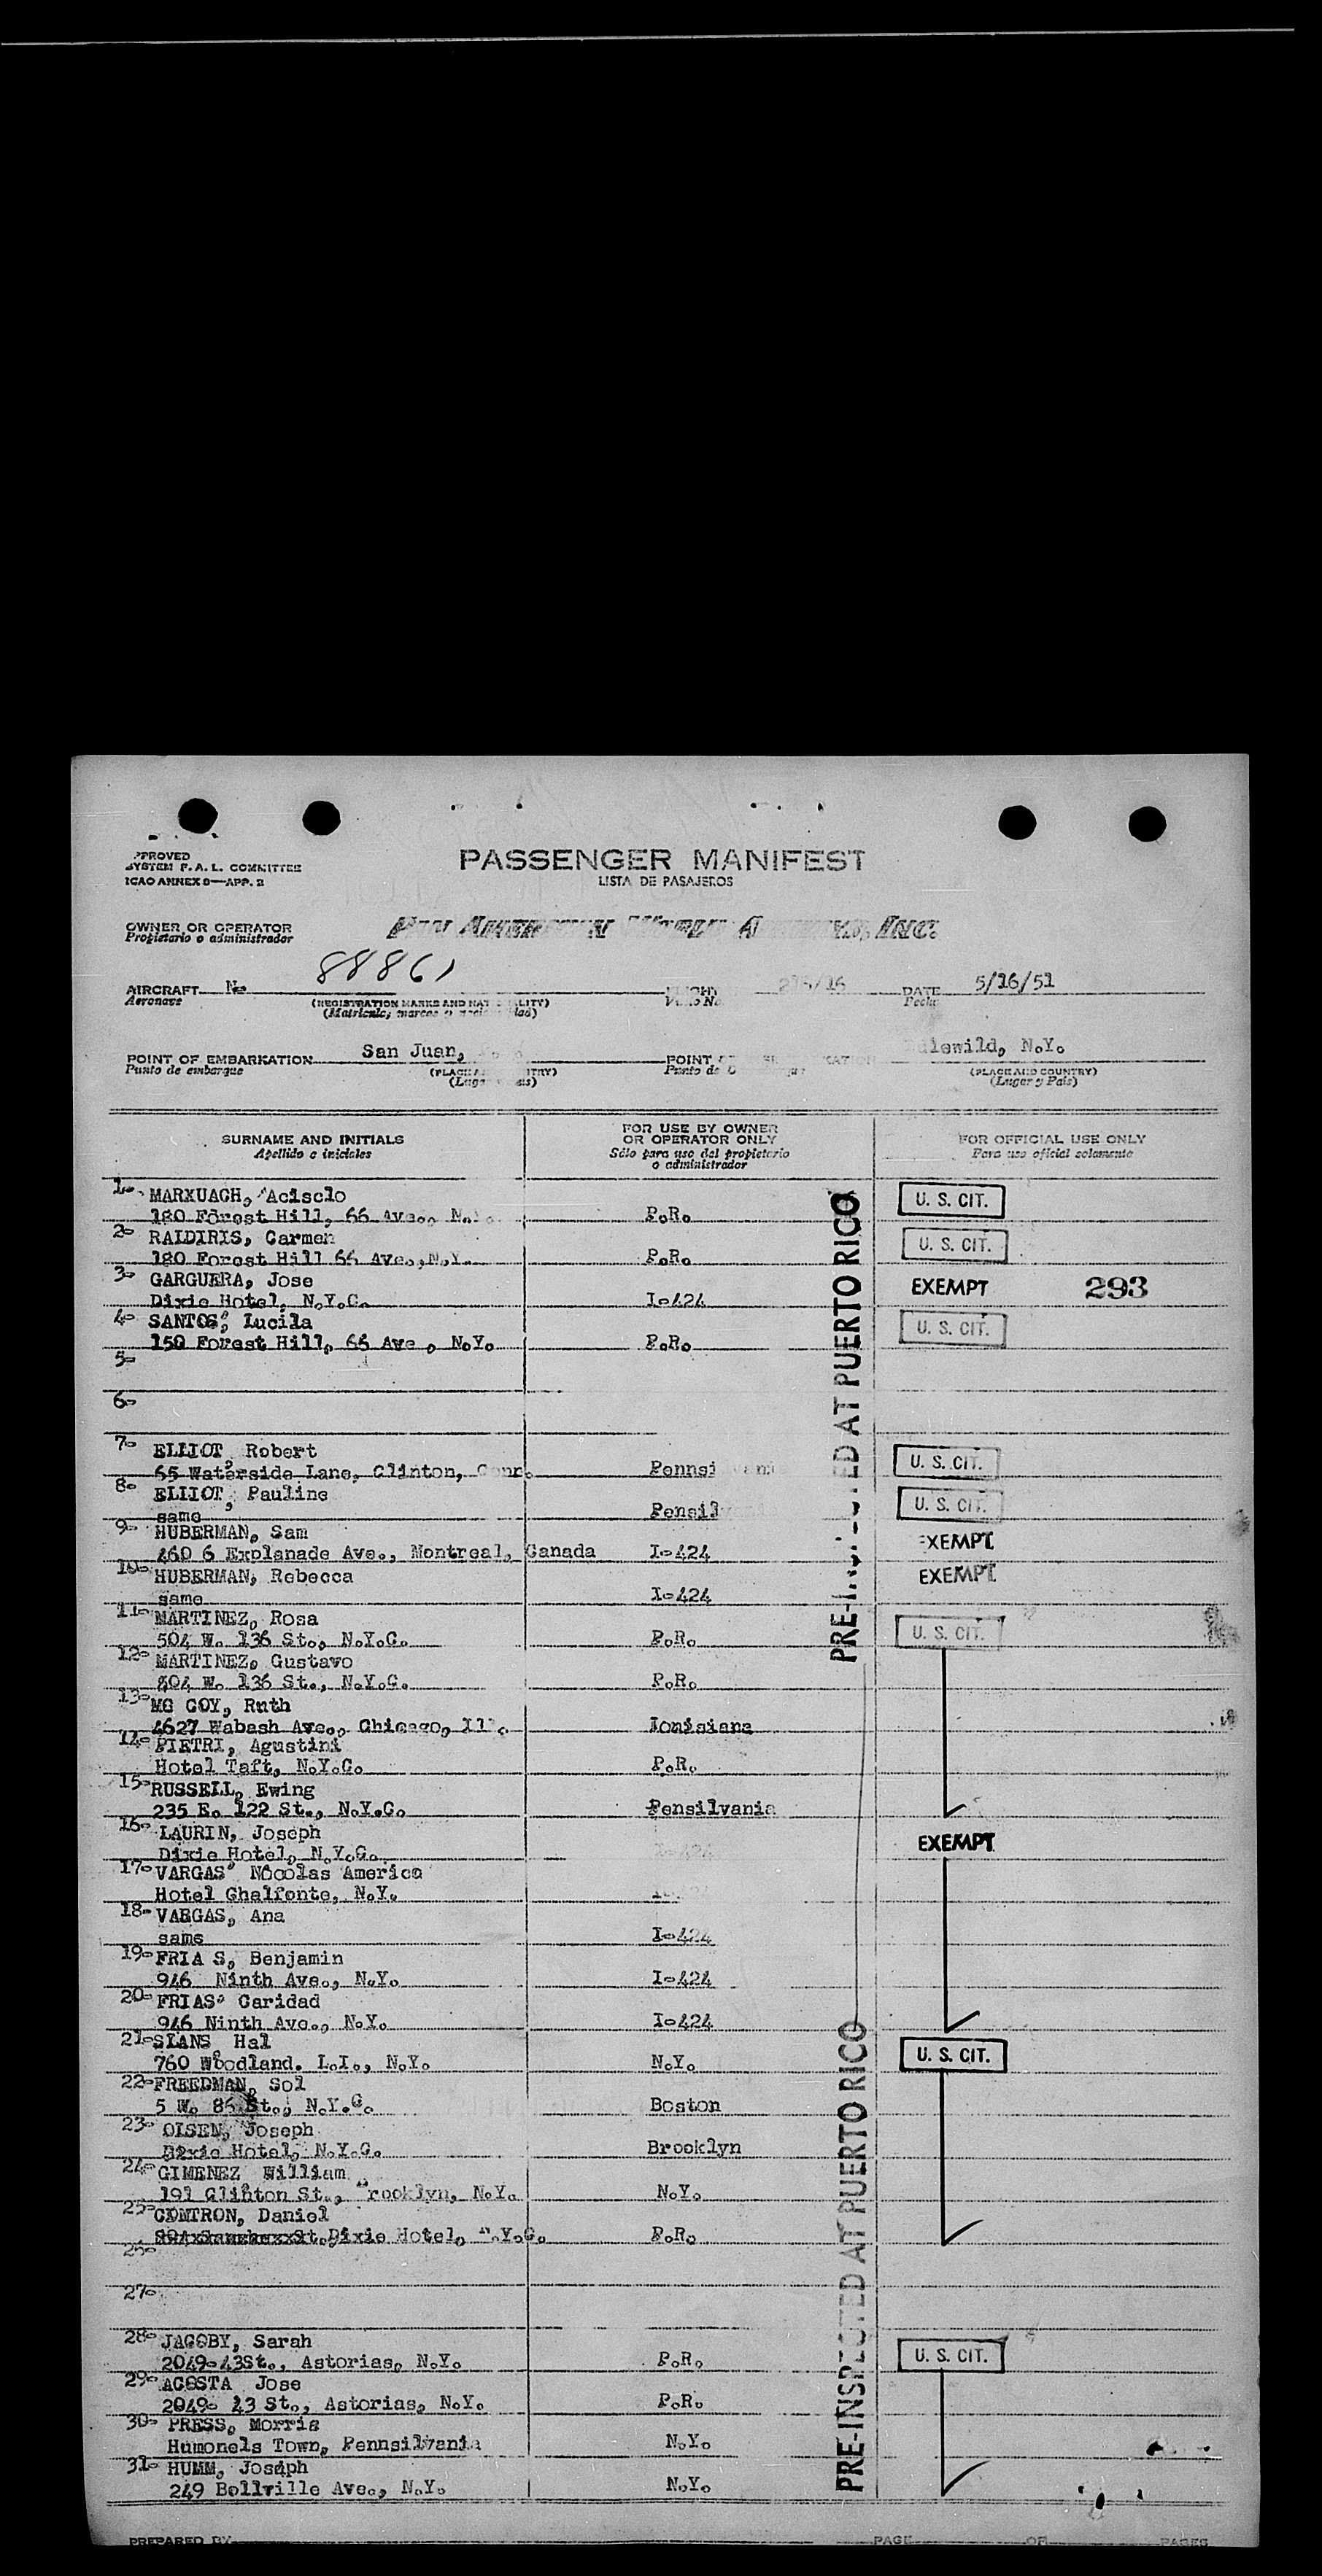 APPROVED
SYSTEM F.A.L. COMMITTEE
ICAO ANNEX 9—APP. 2
PASSENGER MANIFEST
LISTA DE PASAJEROS
OWNER OR OPERATOR
Propietario o administrador
PAN AMERICAN WORLD AIRWAYS, INC.
AIRCRAFT N- 88861 FLIGHT DATE 5/16/51
Aeronave (REGISTRATION MARKS AND NATIONALITY) Vuelo No. Fecha
(Matricula, marcas y nacionalidad)
POINT OF EMBARKATION San Juan, POINT Idlewild, N.Y.
Punto de embarque (PLACE AND COUNTRY) Punto de (PLACE AND COUNTRY)
(Lugar y Pais) (Lugar y Pais)
SURNAME AND INITIALS FOR USE BY OWNER OR OPERATOR ONLY FOR OFFICIAL USE ONLY
Apellido e iniciales Sólo para uso del propietario o administrador Para uso oficial solamente
PRE-INSPECTED AT PUERTO RICO
1- MARXUACH, Acisclo U. S. CIT.
180 Forest Hill, 66 Ave., N.Y. P.R.
2- RAIDIRIS, Carmen U. S. CIT.
180 Forest Hill 66 Ave.,N.Y. P.R.
3- GARGUERA, Jose EXEMPT 293
Dixie Hotel, N.Y.C. I-424
4- SANTOS, Lucila U. S. CIT.
150 Forest Hill, 66 Ave , N.Y. P.R.
5-
6-
7- ELLIOT, Robert U. S. CIT.
65 Waterside Lane, Clinton, Conn. Pennsi
8- ELLIOT, Pauline U. S. CIT.
same Pensil
9- HUBERMAN, Sam EXEMPT
460 6 Explanade Ave., Montreal, Canada I-424
10- HUBERMAN, Rebecca EXEMPT
same I-424
11- MARTINEZ, Rosa U. S. CIT.
504 W. 136 St., N.Y.C. P.R.
12- MARTINEZ, Gustavo
504 W. 136 St., N.Y.C. P.R.
13- MC COY, Ruth
4627 Wabash Ave., Chicago, Ill. Louisiana
14- PIETRI, Agustini
Hotel Taft, N.Y.C. P.R.
15- RUSSELL, Ewing
235 E. 122 St., N.Y.C. Pensilvania
16- LAURIN, Joseph EXEMPT
Dixie Hotel, N.Y.C. I-424
17- VARGAS, Nicolas America
Hotel Chalfonte, N.Y.
18- VARGAS, Ana
same I-424
19- FRIA S, Benjamin
946 Ninth Ave., N.Y. I-424
20- FRIAS, Caridad
946 Ninth Ave., N.Y. I-424
21- SLANS, Hal U. S. CIT.
760 Woodland. L.I., N.Y. N.Y.
22- FREEDMAN, Sol
5 W. 86 St., N.Y.C. Boston
23- OLSEN, Joseph
Dixie Hotel, N.Y.C. Brooklyn
24- GIMENEZ, William
191 Clinton St., Brooklyn, N.Y. N.Y.
25- CINTRON, Daniel
Dixie Hotel, N.Y.C. P.R.
26-
27-
PRE-INSPECTED AT PUERTO RICO
28- JACOBY, Sarah U. S. CIT.
2049-43St., Astorias, N.Y. P.R.
29- ACOSTA Jose
2049- 43 St., Astorias, N.Y. P.R.
30- PRESS, Morris
Humonels Town, Pennsilvania N.Y.
31- HUMM, Joseph
249 Bellville Ave., N.Y. N.Y.
PREPARED BY PAGE OF PAGES